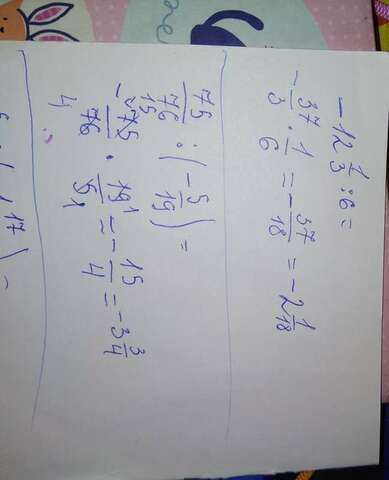 -12 1/3 : 6 =
-37/3 · 1/6 = -37/18 = -2 1/18
75/76 : (-5/19) =
-75/76 · 19/5 = -15/4 = -3 3/4
15 1
4 1
17